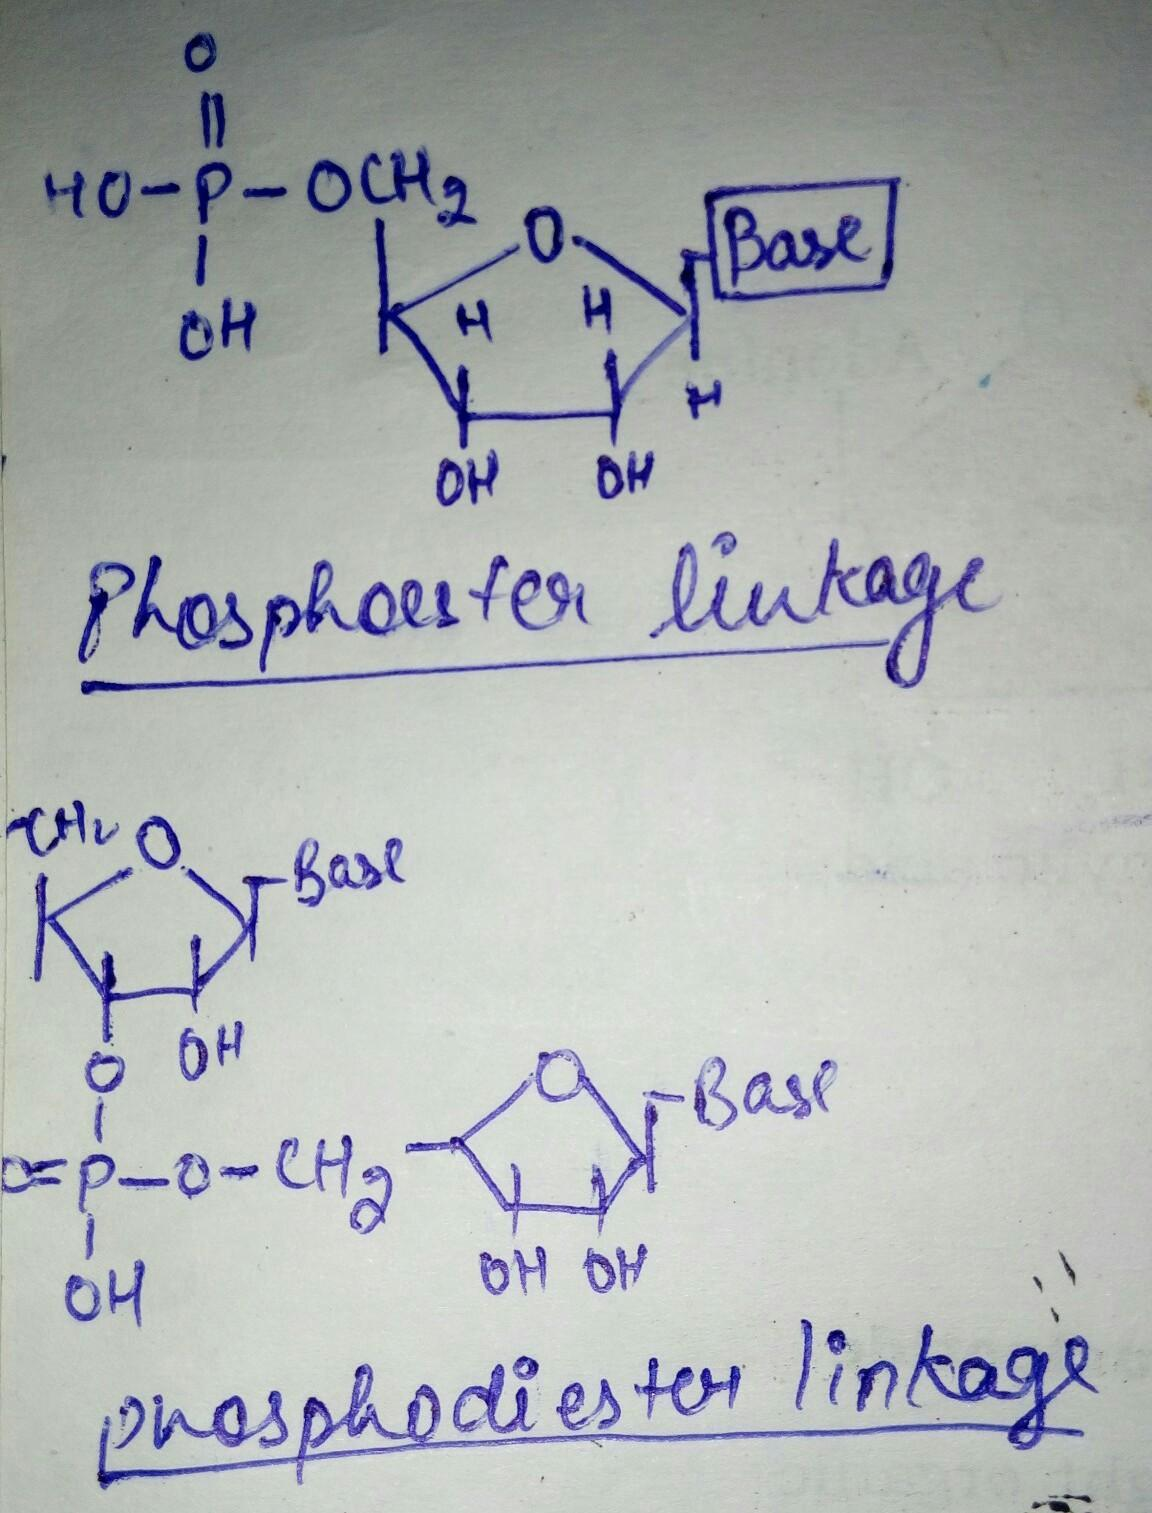 O
HO-P-OCH2
OH
O
Base
H H
H
OH OH
Phosphoester linkage
CH2 O
Base
O OH
O=P-O-CH2
O
Base
OH
OH OH
phosphodiester linkage